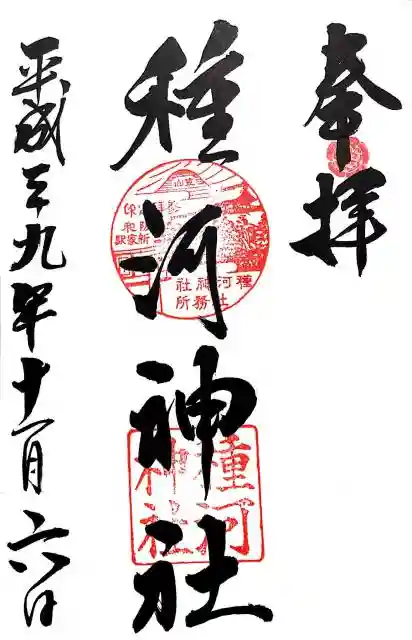 奉拝
種河神社
平成二九年十一月六日
種河神社
社務所
種河
神社